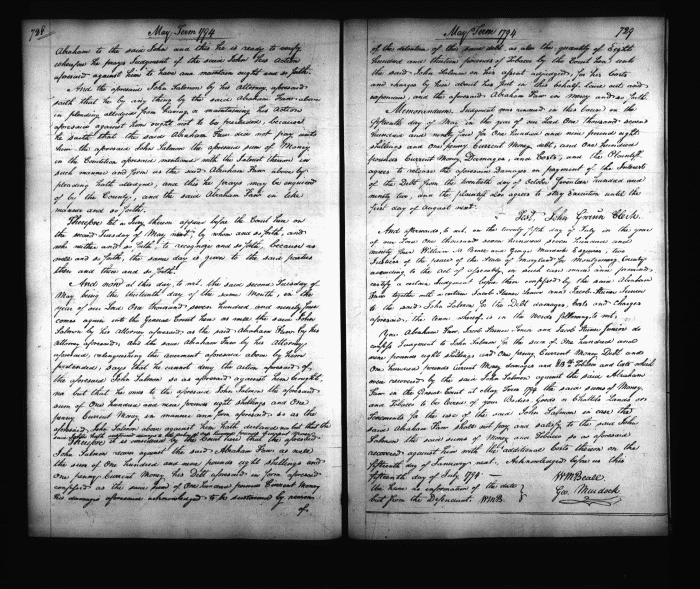 728
May Term 1794
Abraham to the said John and this he is ready to verify
wherefore he prays Judgement of the said John his Action
aforesaid against him to have and maintain ought and so forth.
And the aforesaid John Salmon by his Attorney aforesaid
saith that he by any thing by the said Abraham Faw above
in pleading alledged from having or maintaining his Action
aforesaid against him ought not to be precluded, because
he saith that the said Abraham Faw did not pay unto
him the aforesaid John Salmon the aforesaid sum of Money
in the Condition aforesaid mentioned with the Interest thereon in
such manner and form as the said Abraham Faw above by
pleading hath alledged, and this he prays may be enquired
of by the Country, and the said Abraham Faw in like
manner and so forth.
Therefore let a Jury thereon appear before the Court here on
the second Tuesday of May next, by whom and so forth, and
who neither and so forth, to recognize and so forth, because as
well and so forth, the same day is given to the said parties
then and there and so forth.
And now at this day to wit, the said second Tuesday of
May being the thirteenth day of the same Month, in the
year of our Lord One thousand seven hundred and ninety four
comes again into the General Court here as well the said John
Salmon by his Attorney aforesaid, as the said Abraham Faw by his
attorney aforesaid, and the said Abraham Faw by his Attorney
aforesaid, relinquishing the averment aforesaid above by him
pretended, says that he cannot deny the action aforesaid of
the aforesaid John Salmon so as aforesaid against him brought,
nor but that he owes to the aforesaid John Salmon the aforesaid
sum of One hundred and nine pounds eight shillings and one
penny Current Money in manner and form aforesaid, as as the
aforesaid John Salmon above against him hath declared
Therefore it is considered by the Court here that the aforesaid
John Salmon recover against the said Abraham Faw as well
the sum of One hundred and nine pounds eight shillings and
one penny Current Money, his Debt aforesaid in form aforesaid
confessed as the same sum of One hundred pounds Current Money
his damages aforesaid acknowledged to be sustained by reason
of
May Term 1794
729
of the detention of the same debt, as also the quantity of Eight
hundred and thirteen pounds of Tobacco by the Court here unto
the said John Salmon on his assent adjudged, for his Costs
and charges by him about his Suit in this behalf laid out and
expended, and the aforesaid Abraham Faw in Mercy and so forth.
Memorandum. Judgment was entered in this Cause on the
fifteenth day of May in the year of our Lord One thousand seven
hundred and ninety four for One hundred and nine pounds eight
shillings and One penny Current Money debt, and One hundred
pounds Current Money Damages, and Costs, and the Plaintiff
agrees to release the aforesaid Damages on payment of the Interest
of the Debt from the twentieth day of October Seventeen hundred and
ninety two, and the plaintiff also agrees to stay Execution until the
first day of August next.
Test. John Gwinn Clerk.
And afterwards to wit, on the day of July in the year
of our Lord One thousand seven hundred and
ninety four William M. Beall and George Murdock Esquires, two
Justices of the peace of the State of Maryland for Montgomery County
according to the act of assembly in such case made and provided,
certify a certain Judgment before them confessed by the said Abraham
Faw together with Jacob Steiner and Jacob Steiner Junior
to the said John Salmon for the Debt damages, Costs and Charges
aforesaid, the tenor whereof is in the Words following to wit,
You Abraham Faw, Jacob Steiner and Jacob Steiner Junior do
confess Judgement to John Salmon for the sum of One hundred and
nine pounds eight shillings and One penny Current Money Debt and
One hundred pounds Current Money damages and 813 lb Tobacco and Costs which
were recovered by the said John Salmon against the said Abraham
Faw in the General Court at May Term 1794 the said sums of Money
and Tobacco to be levied of your Bodies Goods or Chattels Lands or
Tenements for the use of the said John Salmon in case the
said Abraham Faw shall not pay and satisfy to the said John
Salmon the said sums of Money and Tobacco so as aforesaid
recovered against him with the additional Costs thereon on the
fifteenth day of January next. Acknowledged before us this
fifteenth day of July 1794.
We have no information of the date
but from the Defendant. WMB.
WM Beall
Geo. Murdock